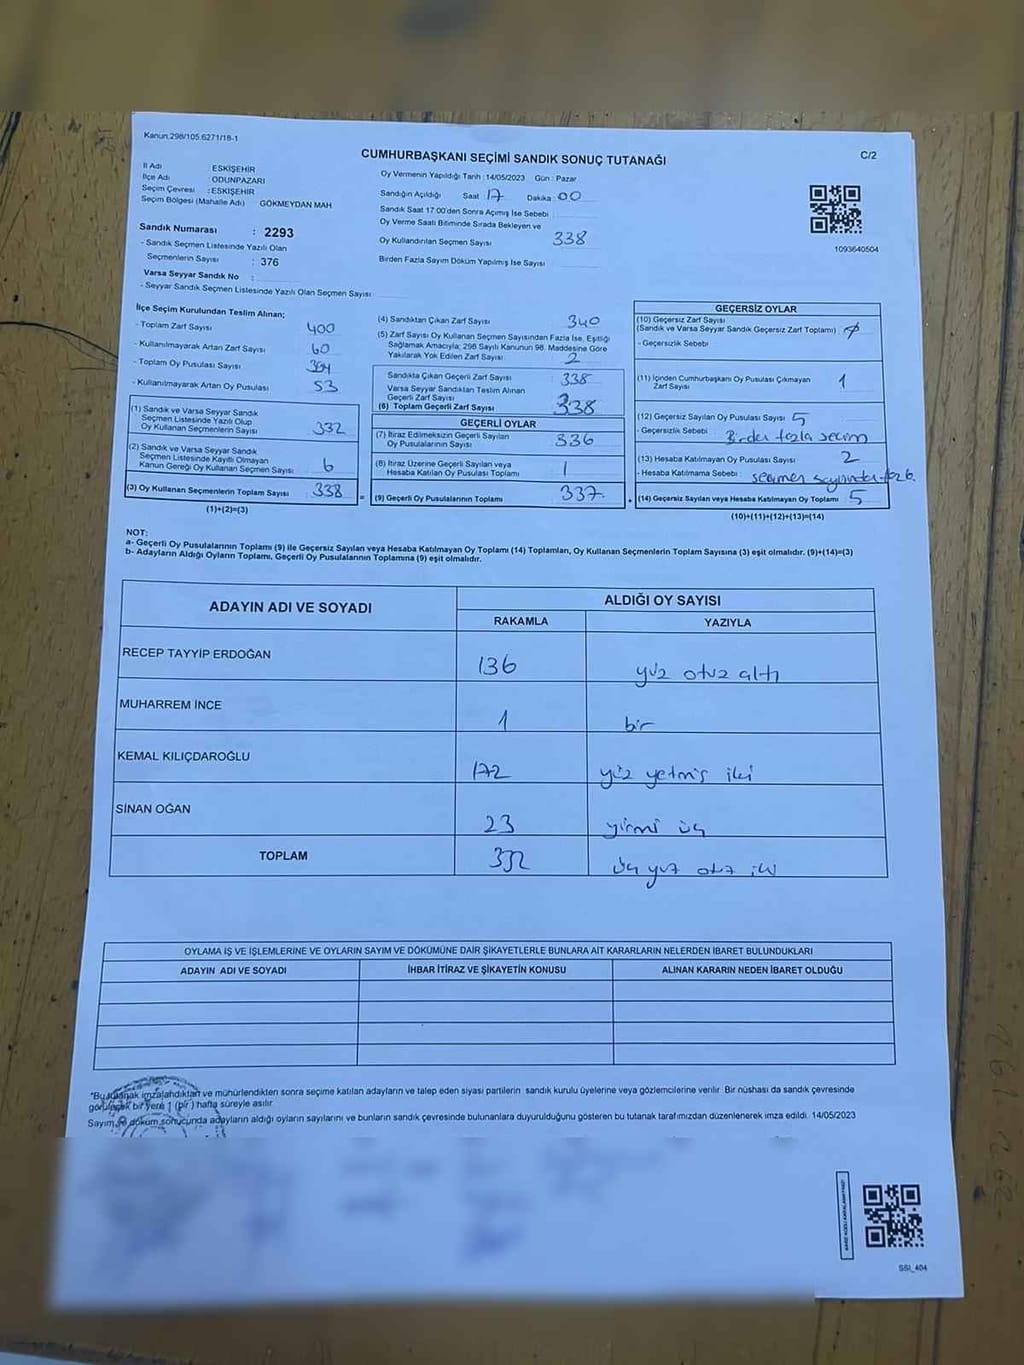 Kanun,298/105.6271/18-1
C/2
CUMHURBAŞKANI SEÇİMİ SANDIK SONUÇ TUTANAĞI
İl Adı ESKİŞEHİR
İlçe Adı ODUNPAZARI
Seçim Çevresi : ESKİŞEHİR
Seçim Bölgesi (Mahalle Adı) GÖKMEYDAN MAH.
Sandık Numarası : 2293
- Sandık Seçmen Listesinde Yazılı Olan
Seçmenlerin Sayısı : 376
Varsa Seyyar Sandık No :
- Seyyar Sandık Seçmen Listesinde Yazılı Olan Seçmen Sayısı:
Oy Vermenin Yapıldığı Tarih : 14/05/2023 Gün : Pazar
Sandığın Açıldığı Saat 17 Dakika 00
Sandık Saat 17.00'den Sonra Açımış İse Sebebi
Oy Verme Saati Bitiminde Sırada Bekleyen ve
Oy Kullandırılan Seçmen Sayısı 338
Birden Fazla Sayım Döküm Yapılmış İse Sayısı
1093640504
İlçe Seçim Kurulundan Teslim Alınan;
- Toplam Zarf Sayısı 400
- Kullanılmayarak Artan Zarf Sayısı 60
- Toplam Oy Pusulası Sayısı
- Kullanılmayarak Artan Oy Pusulası 53
(1) Sandık ve Varsa Seyyar Sandık
Seçmen Listesinde Yazılı Olup
Oy Kullanan Seçmenlerin Sayısı 332
(2) Sandık ve Varsa Seyyar Sandık
Seçmen Listesinde Kayıtlı Olmayan
Kanun Gereği Oy Kullanan Seçmen Sayısı 6
(3) Oy Kullanan Seçmenlerin Toplam Sayısı 338 =
(1)+(2)=(3)
(4) Sandıktan Çıkan Zarf Sayısı 340
(5) Zarf Sayısı Oy Kullanan Seçmen Sayısından Fazla İse, Eşitliği
Sağlamak Amacıyla; 298 Sayılı Kanunun 98. Maddesine Göre
Yakılarak Yok Edilen Zarf Sayısı 2
Sandıkta Çıkan Geçerli Zarf Sayısı 338
Varsa Seyyar Sandıktan Teslim Alınan
Geçerli Zarf Sayısı
(6) Toplam Geçerli Zarf Sayısı 338
GEÇERLİ OYLAR
(7) İtiraz Edilmeksizin Geçerli Sayılan
Oy Pusulalarının Sayısı 336
(8) İtiraz Üzerine Geçerli Sayılan veya
Hesaba Katılan Oy Pusulası Toplamı 1
(9) Geçerli Oy Pusulalarının Toplamı 337 +
GEÇERSİZ OYLAR
(10) Geçersiz Zarf Sayısı
(Sandık ve Varsa Seyyar Sandık Geçersiz Zarf Toplamı)
- Geçersizlik Sebebi
(11) İçinden Cumhurbaşkanı Oy Pusulası Çıkmayan
Zarf Sayısı 1
(12) Geçersiz Sayılan Oy Pusulası Sayısı 5
- Geçersizlik Sebebi Birden fazla seçim
(13) Hesaba Katılmayan Oy Pusulası Sayısı 2
- Hesaba Katılmama Sebebi seçmen sayısından
(14) Geçersiz Sayılan veya Hesaba Katılmayan Oy Toplamı 5
(10)+(11)+(12)+(13)=(14)
NOT:
a- Geçerli Oy Pusulalarının Toplamı (9) ile Geçersiz Sayılan veya Hesaba Katılmayan Oy Toplamı (14) Toplamları, Oy Kullanan Seçmenlerin Toplam Sayısına (3) eşit olmalıdır. (9)+(14)=(3)
b- Adayların Aldığı Oyların Toplamı, Geçerli Oy Pusulalarının Toplamına (9) eşit olmalıdır.
ADAYIN ADI VE SOYADI ALDIĞI OY SAYISI
RAKAMLA YAZIYLA
RECEP TAYYİP ERDOĞAN 136 yüz otuz altı
MUHARREM İNCE 1 bir
KEMAL KILIÇDAROĞLU 172 yüz yetmiş iki
SİNAN OĞAN 23 yirmi üç
TOPLAM 332 üç yüz otuz iki
OYLAMA İŞ VE İŞLEMLERİNE VE OYLARIN SAYIM VE DÖKÜMÜNE DAİR ŞİKAYETLERLE BUNLARA AİT KARARLARIN NELERDEN İBARET BULUNDUKLARI
ADAYIN ADI VE SOYADI İHBAR İTİRAZ VE ŞİKAYETİN KONUSU ALINAN KARARIN NEDEN İBARET OLDUĞU
"Bu tutanak imzalandıktan ve mühürlendikten sonra seçime katılan adayların ve talep eden siyasi partilerin sandık kurulu üyelerine veya gözlemcilerine verilir. Bir nüshası da sandık çevresinde
görülecek bir yere 1 (bir) hafta süreyle asılır.
Sayım ve döküm sonucunda adayların aldığı oyların sayılarını ve bunların sandık çevresinde bulunanlara duyurulduğunu gösteren bu tutanak tarafımızdan düzenlenerek imza edildi. 14/05/2023
SSI_404